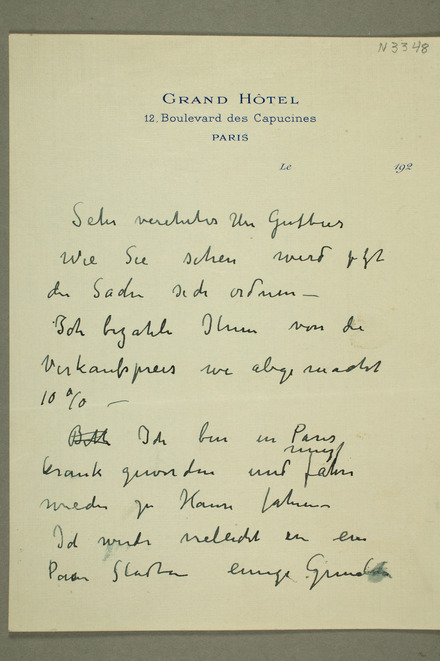 N 3348
GRAND HÔTEL
12, Boulevard des Capucines
PARIS
Le 192
Sehr verehrter Herr
Wie Sie sehen wird jetzt
die Sache sich ordnen —
Ich bezahle Ihnen von die
Verkaufspreis wie abgemacht
10 % —
Ich bin in Paris
krank geworden und muss
wieder zu Hause fahren
Ich werde vieleicht in ein
Paar Stadten einige